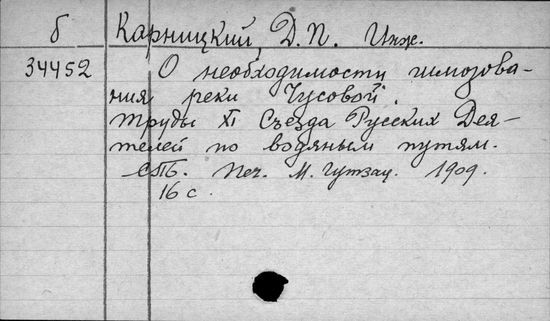 б Карницкий, Д. П. Инж.
34452 О необходимости шлюзова-
ния реки Чусовой.
Труды XI Съезда Русских Дея-
телей по водяным путям.
СПБ. Печ. М. Гутзац. 1909.
16 с.